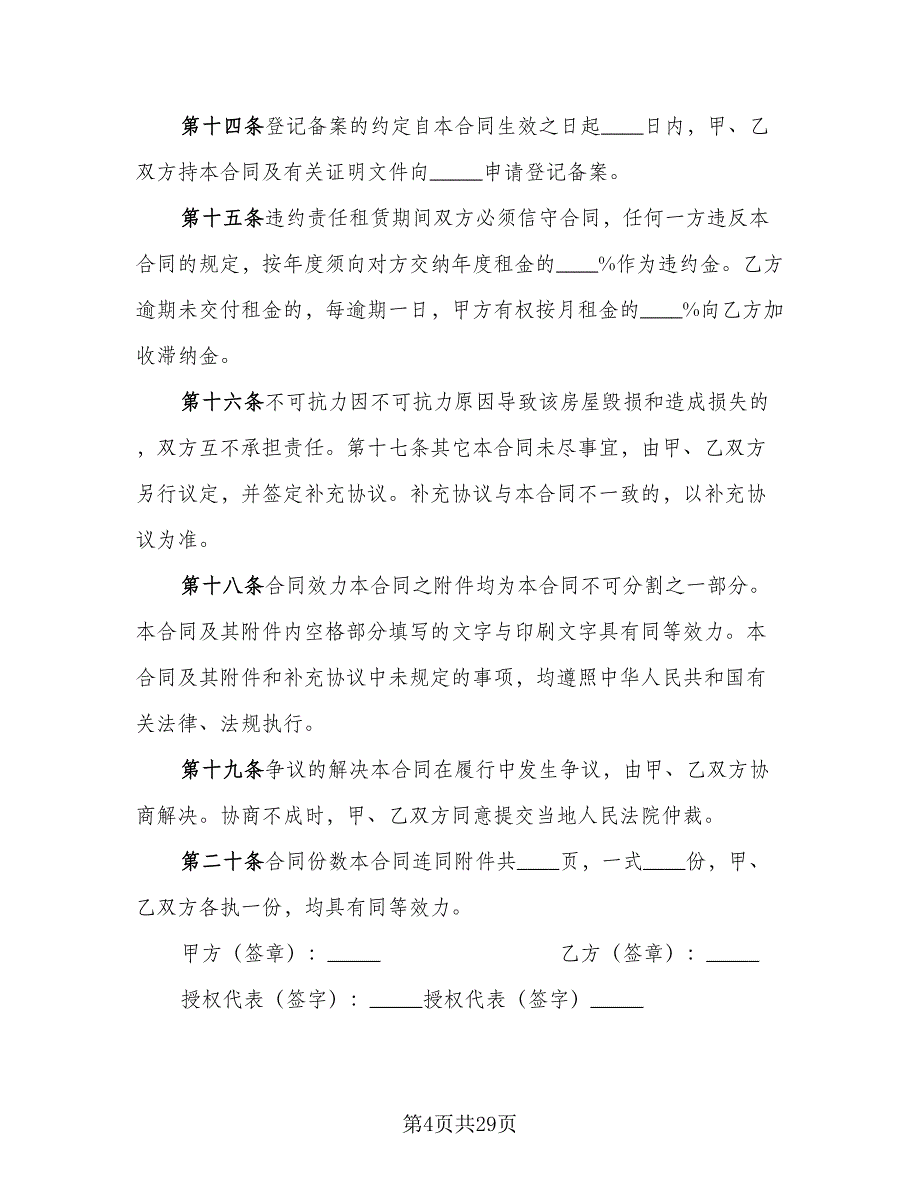 第十四条登记备案的约定自本合同生效之日起____日内，甲、乙
双方持本合同及有关证明文件向_____申请登记备案。
第十五条违约责任租赁期间双方必须信守合同，任何一方违反本
合同的规定，按年度须向对方交纳年度租金的____%作为违约金。乙方
逾期未交付租金的，每逾期一日，甲方有权按月租金的____%向乙方加
收滞纳金。
第十六条不可抗力因不可抗力原因导致该房屋毁损和造成损失的
，双方互不承担责任。第十七条其它本合同未尽事宜，由甲、乙双方
另行议定，并签定补充协议。补充协议与本合同不一致的，以补充协
议为准。
第十八条合同效力本合同之附件均为本合同不可分割之一部分。
本合同及其附件内空格部分填写的文字与印刷文字具有同等效力。本
合同及其附件和补充协议中未规定的事项，均遵照中华人民共和国有
关法律、法规执行。
第十九条争议的解决本合同在履行中发生争议，由甲、乙双方协
商解决。协商不成时，甲、乙双方同意提交当地人民法院仲裁。
第二十条合同份数本合同连同附件共____页，一式____份，甲、
乙双方各执一份，均具有同等效力。
甲方（签章）：_____ 乙方（签章）：_____
授权代表（签字）：_____授权代表（签字）_____
第4页共29页